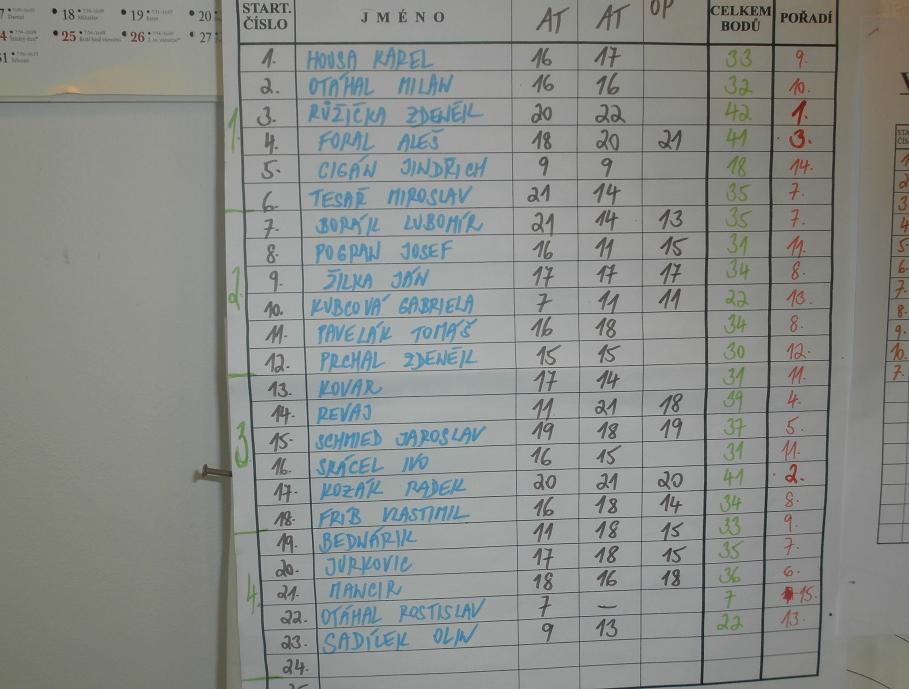 18 19 20
25 26 27
31
START. ČÍSLO JMÉNO AT AT OP CELKEM BODŮ POŘADÍ
1. HOUSA KAREL 16 17 33 9.
2. OTÁHAL MILAN 16 16 32 10.
3. RŮŽIČKA ZDENĚK 20 22 42 1.
4. FORAL ALEŠ 18 20 21 41 3.
5. CIGÁN JINDŘICH 9 9 18 14.
6. TESAŘ MIROSLAV 21 14 35 7.
7. BORÁK LUBOMÍR 21 14 13 35 7.
8. POGRAN JOSEF 16 11 15 31 11.
9. ŽILKA JÁN 17 17 17 34 8.
10. KUBCOVÁ GABRIELA 7 11 11 22 13.
11. PAVELÁK TOMÁŠ 16 18 34 8.
12. PRCHAL ZDENĚK 15 15 30 12.
13. KOVAR 17 14 31 11.
14. REVAJ 11 21 18 39 4.
15. SCHMIED JAROSLAV 19 18 19 37 5.
16. SKÁCEL IVO 16 15 31 11.
17. KOZÁK RADEK 20 21 20 41 2.
18. FRIB VLASTIMIL 16 18 14 34 8.
19. BEDNÁRIK 11 18 15 33 9.
20. JURKOVIC 17 18 15 35 7.
21. MANCIR 18 16 18 36 6.
22. OTÁHAL ROSTISLAV 7 – 7 15.
23. SADÍLEK OLIN 9 13 22 13.
24.
1.
2.
3
4.